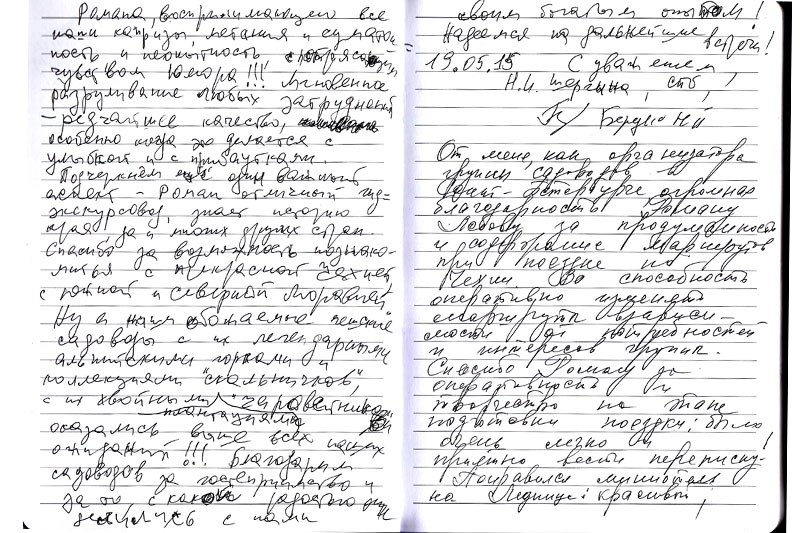 Романа, воспринимающего все
наши капризы, метания и суматош
ность и неопытность с потрясающим
чувством юмора!!! Мгновенное
разруливание любых затруднений
– редчайшее качество,
особенно когда это делается с
улыбкой и с прибаутками.
Подчеркнём ещё один важный
аспект – Роман отличный гид-
экскурсовод, знает историю
края, да и многих других стран.
Спасибо за возможность познако-
миться с прекрасной Чехией
с южной и северной Моравией
Ну а наши обожаемые чешские
садоводы с их легендарными
альпийскими горками и
коллекциями "скальничков",
с их хвойными
плантациями
оказались выше всех наших
ожиданий!!! Благодарим
садоводов за гостеприимство и
за то с какой радостью они
делились с нами
своим богатым опытом!
Надеемся на дальнейшие встречи!
19.05.15 С уважением
Н.И. СПб,
От меня, как организатора
группы садоводов в
Санкт-Петербурге огромная
благодарность Роману
за продуманность
и содержание маршрутов
при поездке по
Чехии. За способность
оперативно изменять
маршруты в зависи-
мости от потребностей
и интересов группы.
Спасибо Роману за
оперативность и
творчество на этапе
подготовки поездки: было
очень легко и
приятно вести переписку!
Понравился
на Леднице: красивый,